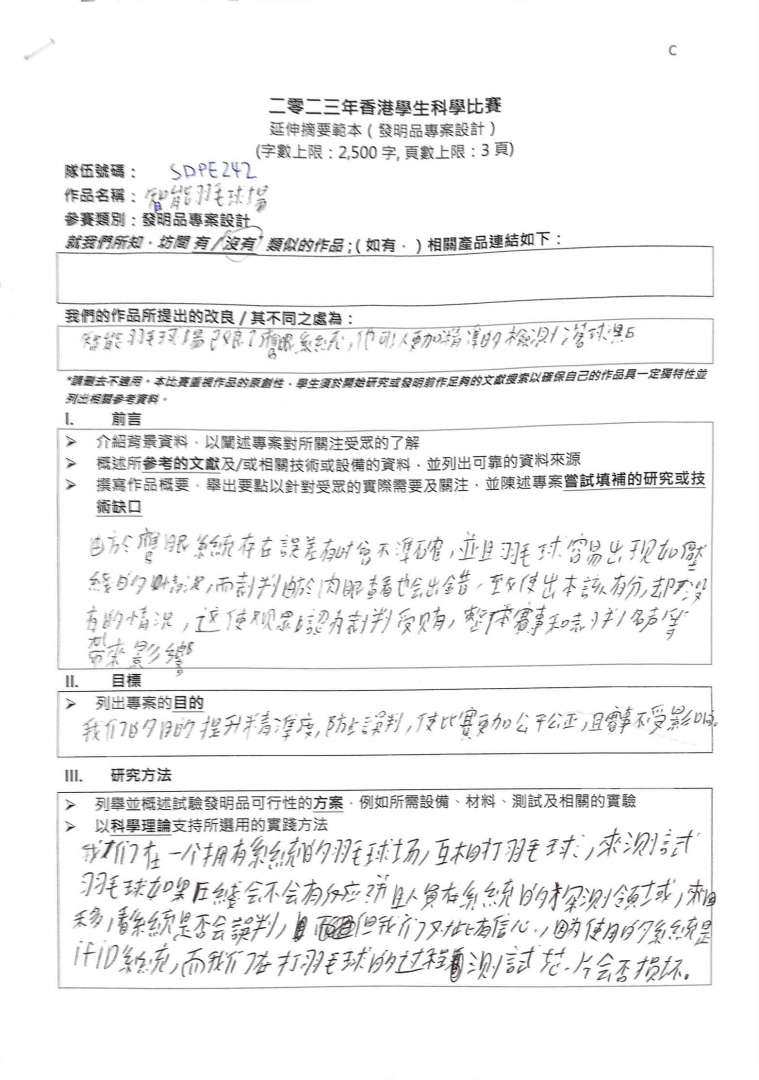 C
二零二三年香港學生科學比賽
延伸摘要範本(發明品專案設計)
(字數上限:2,500 字, 頁數上限:3 頁)
隊伍號碼: SDPE242
作品名稱:智能羽毛球場
參賽類別:發明品專案設計
就我們所知,坊間 有/沒有* 類似的作品;(如有,)相關產品連結如下:
我們的作品所提出的改良/其不同之處為:
智能羽毛球場改良了鷹眼系統,他可以更加精準的檢測落球點
*請刪去不適用。本比賽重視作品的原創性,學生須於開始研究或發明前作足夠的文獻搜索以確保自己的作品具一定獨特性並
列出相關參考資料。
I. 前言
➤ 介紹背景資料,以闡述專案對所關注受眾的了解
➤ 概述所參考的文獻及/或相關技術或設備的資料,並列出可靠的資料來源
➤ 撰寫作品概要,舉出要點以針對受眾的實際需要及關注,並陳述專案嘗試填補的研究或技
術缺口
由於鷹眼系統存在誤差有时會不準確,並且羽毛球容易出現如壓
綫的情況,而裁判由於肉眼查看也会出錯,至使出本該有分,却沒
有的情況,這使观眾認為裁判受賄,整体賽事和裁判名声等
带來影響
II. 目標
➤ 列出專案的目的
我们的目的提升精準度,防止誤判,使比賽更加公平公正,且賽事不受影响。
III. 研究方法
➤ 列舉並概述試驗發明品可行性的方案,例如所需設備、材料、測試及相關的實驗
➤ 以科學理論支持所選用的實踐方法
我们在一个拥有系統的羽毛球场,互相打羽毛球,來测試
羽毛球如果压綫会不会有反应 且人員在系統的探测領域,來回
移,看系統是否会誤判,但我们对此有信心,因為使用的系統是
ifID系統,而我们在打羽毛球的过程测試芯片会否损坏。